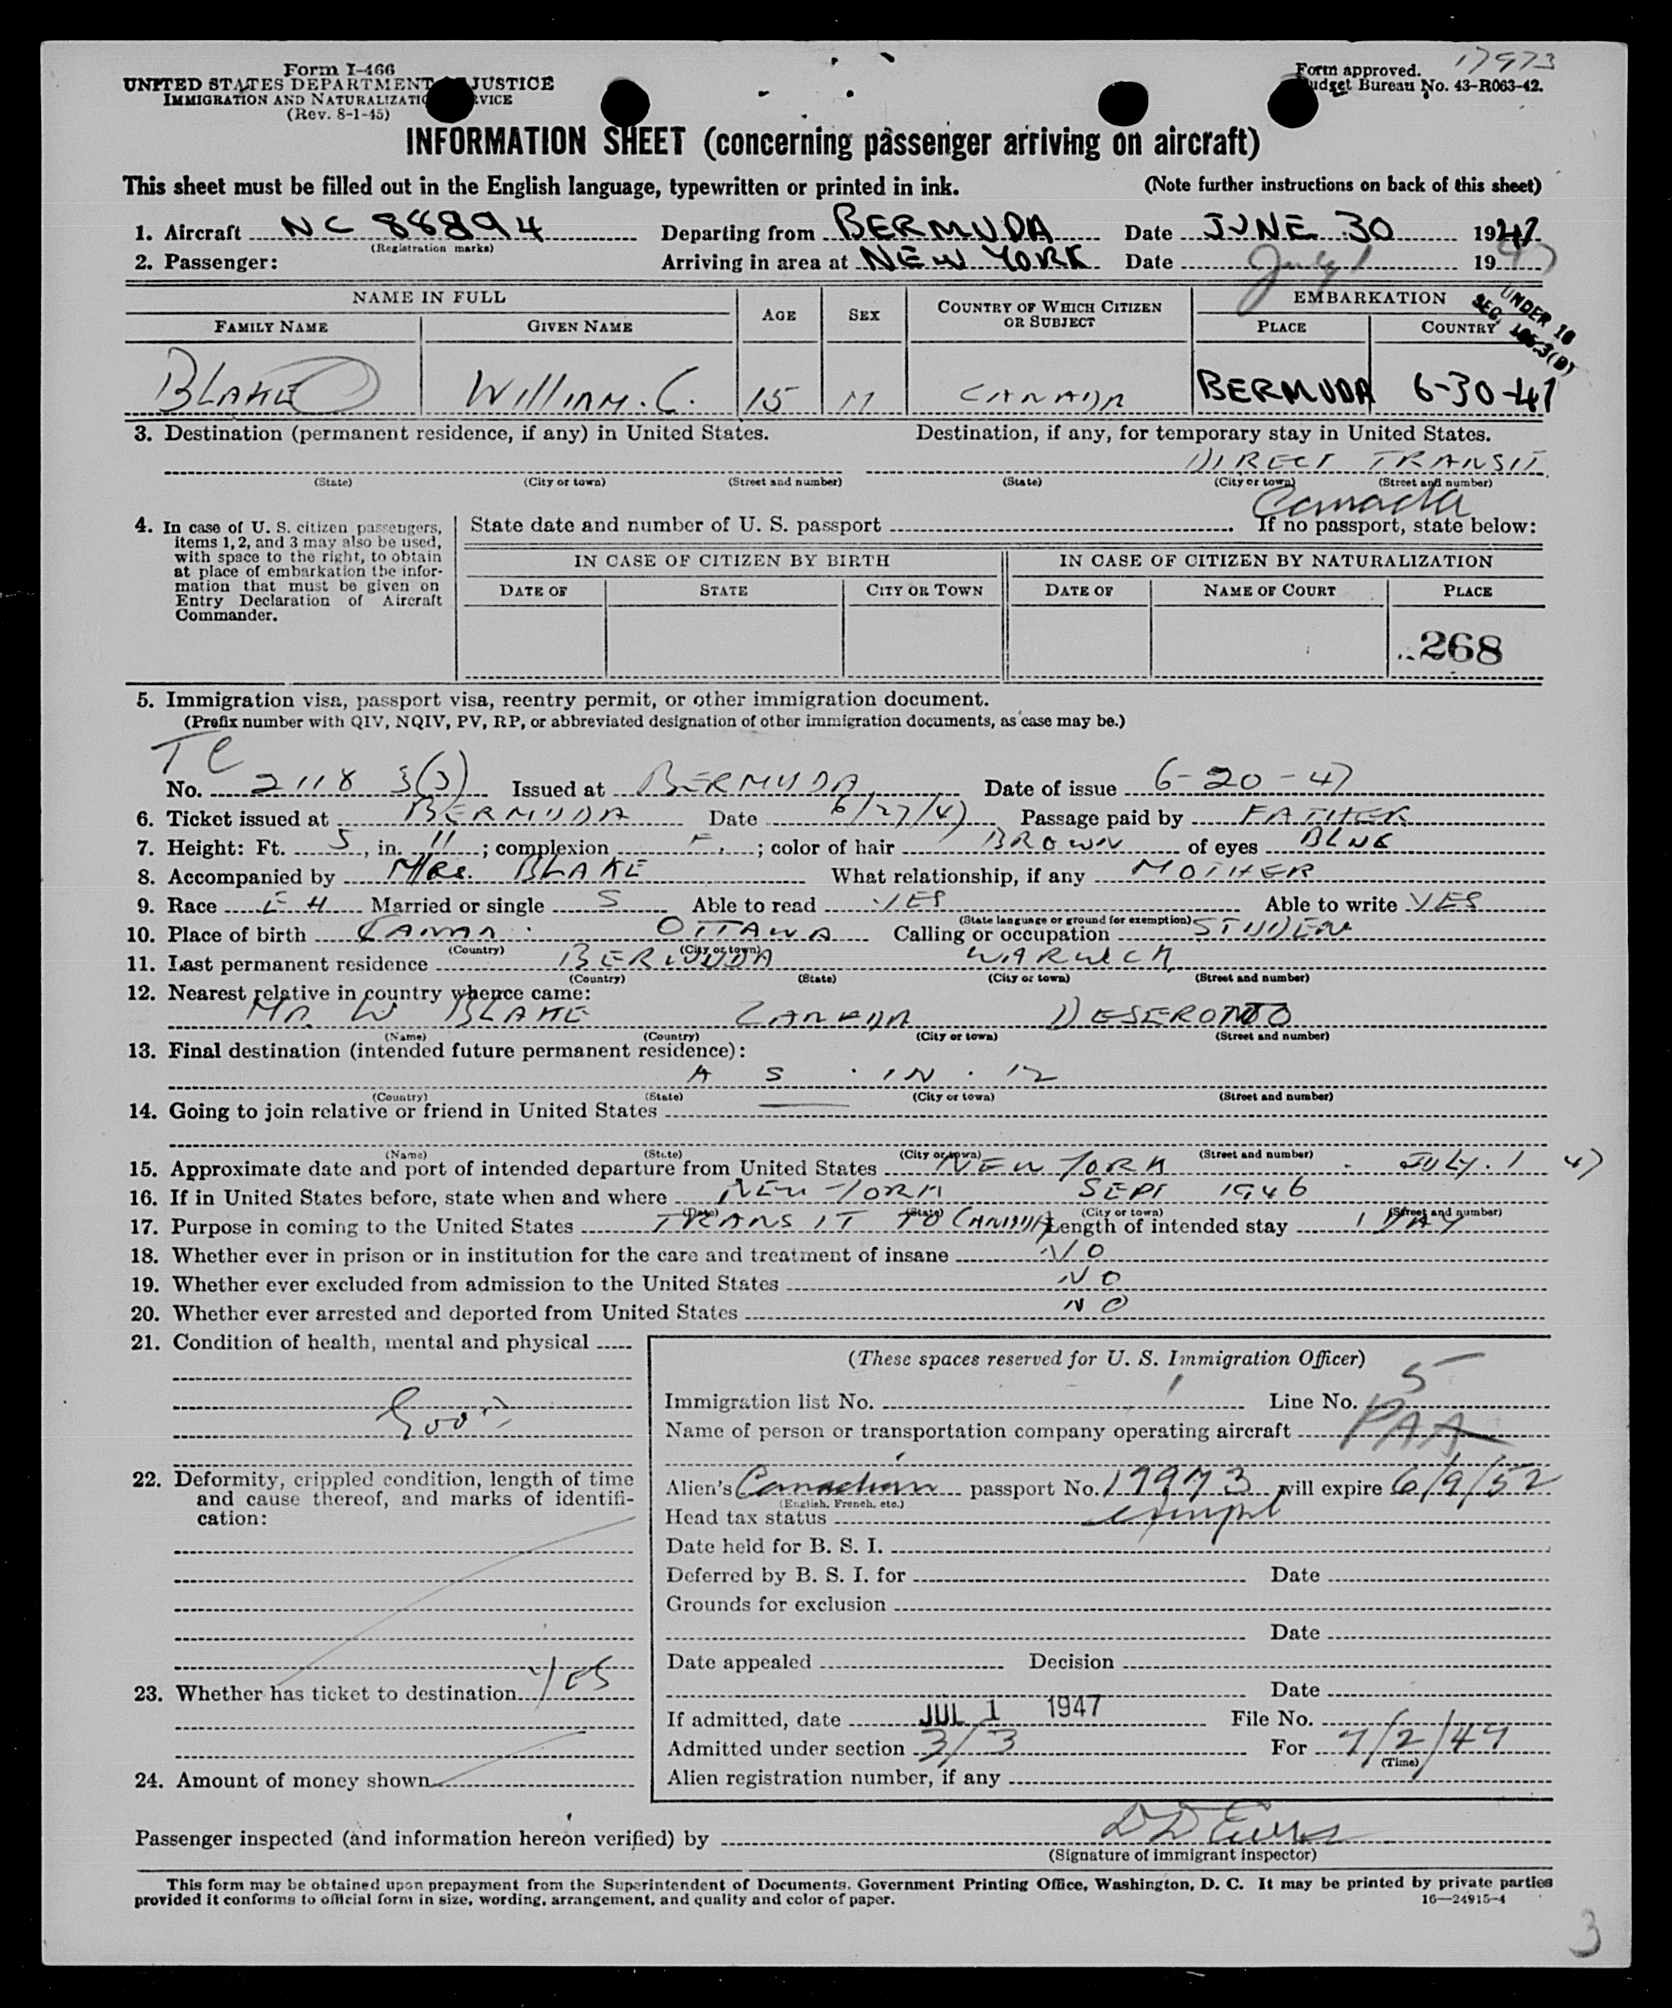 17973
Form I-466
UNITED STATES DEPARTMENT JUSTICE
IMMIGRATION AND NATURALIZATION SERVICE
(Rev. 8-1-45)
Form approved.
Budget Bureau No. 43-R063-42.
INFORMATION SHEET (concerning passenger arriving on aircraft)
This sheet must be filled out in the English language, typewritten or printed in ink. (Note further instructions on back of this sheet)
1. Aircraft NC 88894 Departing from BERMUDA Date JUNE 30 1947
(Registration marks)
2. Passenger: Arriving in area at NEW YORK Date July 1 1947
NAME IN FULL AGE SEX COUNTRY OF WHICH CITIZEN OR SUBJECT EMBARKATION
UNDER 16
SEC.
FAMILY NAME GIVEN NAME PLACE COUNTRY
BLAKE WILLIAM. C. 15 M CANADA BERMUDA 6-30-47
3. Destination (permanent residence, if any) in United States. Destination, if any, for temporary stay in United States.
DIRECT TRANSIT
(State) (City or town) (Street and number) (State) (City or town) (Street and number)
Canada
4. In case of U. S. citizen passengers, items 1, 2, and 3 may also be used, with space to the right, to obtain at place of embarkation the information that must be given on Entry Declaration of Aircraft Commander.
State date and number of U. S. passport If no passport, state below:
IN CASE OF CITIZEN BY BIRTH IN CASE OF CITIZEN BY NATURALIZATION
DATE OF STATE CITY OR TOWN DATE OF NAME OF COURT PLACE
268
5. Immigration visa, passport visa, reentry permit, or other immigration document.
(Prefix number with QIV, NQIV, PV, RP, or abbreviated designation of other immigration documents, as case may be.)
TC
No. 2118 3(3) Issued at BERMUDA Date of issue 6-20-47
6. Ticket issued at BERMUDA Date 6/27/47 Passage paid by FATHER
7. Height: Ft. 5, in. 11; complexion F.; color of hair BROWN of eyes BLUE
8. Accompanied by MRS. BLAKE What relationship, if any MOTHER
9. Race EH Married or single S Able to read YES Able to write YES
(State language or ground for exemption)
10. Place of birth CANAD. OTTAWA Calling or occupation STUDENT
(Country) (City or town)
11. Last permanent residence BERMUDA WARWICK
(Country) (State) (City or town) (Street and number)
12. Nearest relative in country whence came:
MR. W BLAKE CANADA DESERONTO
(Name) (Country) (City or town) (Street and number)
13. Final destination (intended future permanent residence):
AS IN 12
(Country) (State) (City or town) (Street and number)
14. Going to join relative or friend in United States
(Name) (State) (City or town) (Street and number)
15. Approximate date and port of intended departure from United States NEW YORK JULY. 1 47
16. If in United States before, state when and where NEW YORK SEPT 1946
(Date) (State) (City or town) (Street and number)
17. Purpose in coming to the United States TRANSIT TO CANADA Length of intended stay 1 DAY
18. Whether ever in prison or in institution for the care and treatment of insane NO
19. Whether ever excluded from admission to the United States NO
20. Whether ever arrested and deported from United States NO
21. Condition of health, mental and physical
Good
22. Deformity, crippled condition, length of time and cause thereof, and marks of identification:
23. Whether has ticket to destination YES
24. Amount of money shown
(These spaces reserved for U. S. Immigration Officer)
Immigration list No. 1 Line No. 5
Name of person or transportation company operating aircraft PAA
Alien's Canadian passport No. 17973 will expire 6/9/52
(English, French, etc.)
Head tax status exempt
Date held for B. S. I.
Deferred by B. S. I. for Date
Grounds for exclusion
Date
Date appealed Decision
Date
If admitted, date JUL 1 1947 File No.
Admitted under section 3/3 For 7/2/47
(Time)
Alien registration number, if any
Passenger inspected (and information hereon verified) by
(Signature of immigrant inspector)
This form may be obtained upon prepayment from the Superintendent of Documents, Government Printing Office, Washington, D. C. It may be printed by private parties
provided it conforms to official form in size, wording, arrangement, and quality and color of paper. 16—24915-4
3